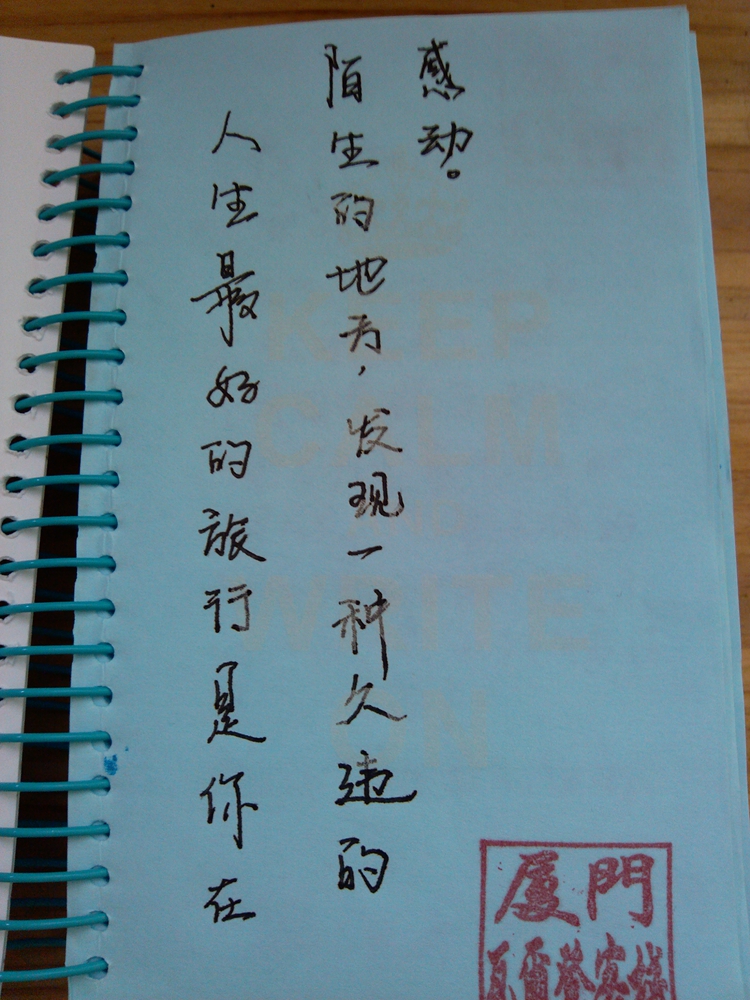 人生最好的旅行是你在
陌生的地方,发现一种久违的
感动。
KEEP
CALM
AND
WRITE
ON
厦門